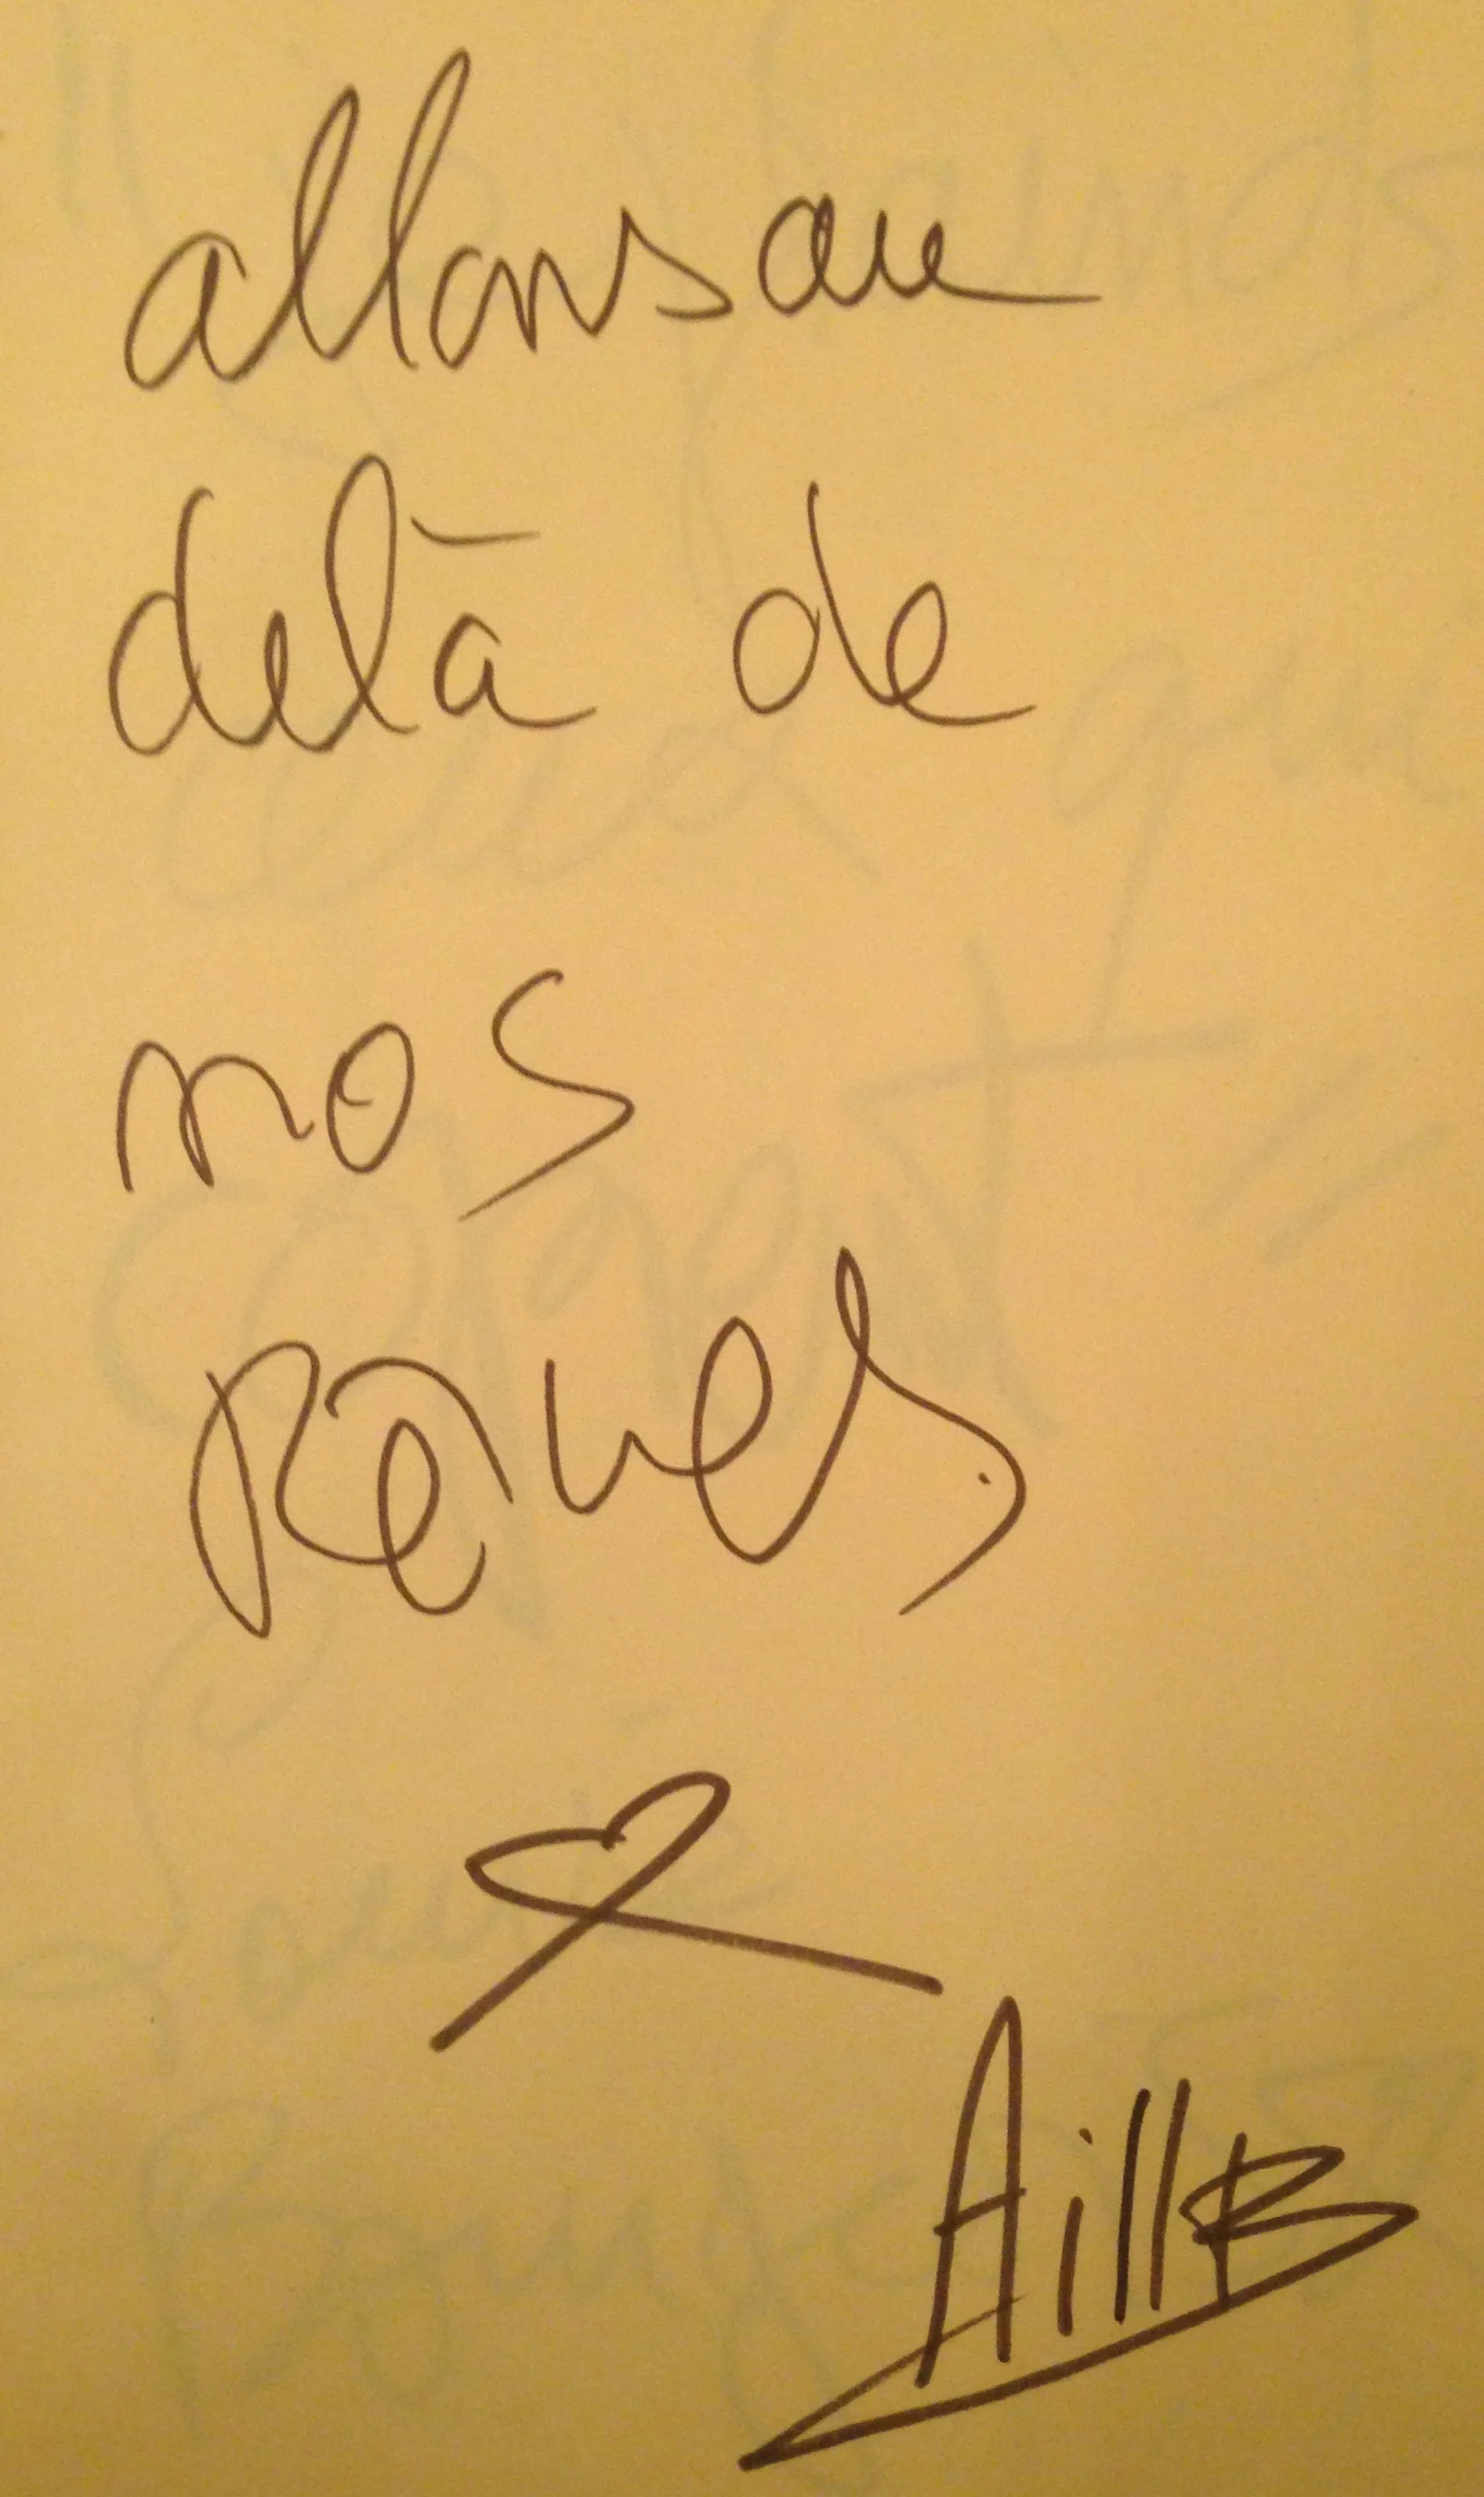 allons au
delà de
nos
Rêves.
AillB